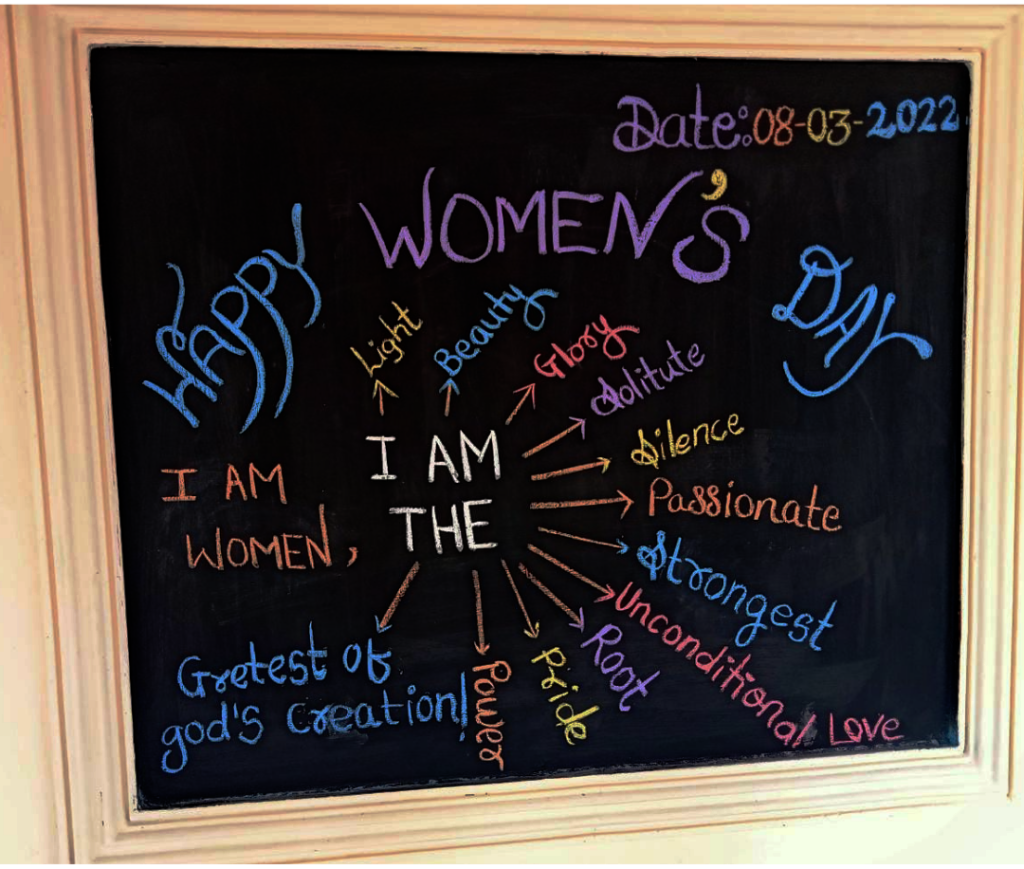 Date: 08-03-2022
HAPPY WOMEN'S DAY
I AM
WOMEN,
I AM
THE
Light
Beauty
Glory
Solitute
Silence
Passionate
Strongest
Unconditional Love
Root
Pride
Power
Gretest of
god's creation!